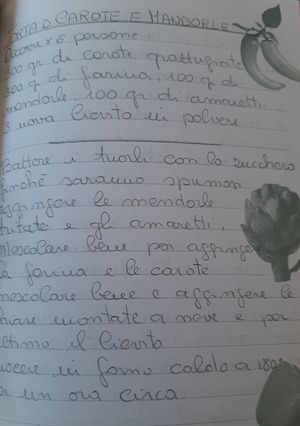 TORTA D CAROTE E MANDORLE
Occorre x 6 persone
300 gr di carote grattugiate
300 g di farina, 100 g di
mandorle, 100 gr di amaretti
3 uova lievito in polvere
Battere i tuorli con lo zucchero
finchè saranno spumosi
aggingere le mandorle
tritate e gli amaretti,
mescolare bene poi aggingere
la farina e le carote
mescolare bene e aggingere le
chiare montate a neve e per
ultimo il lievito
cuocere in forno caldo a 180°
per un ora circa